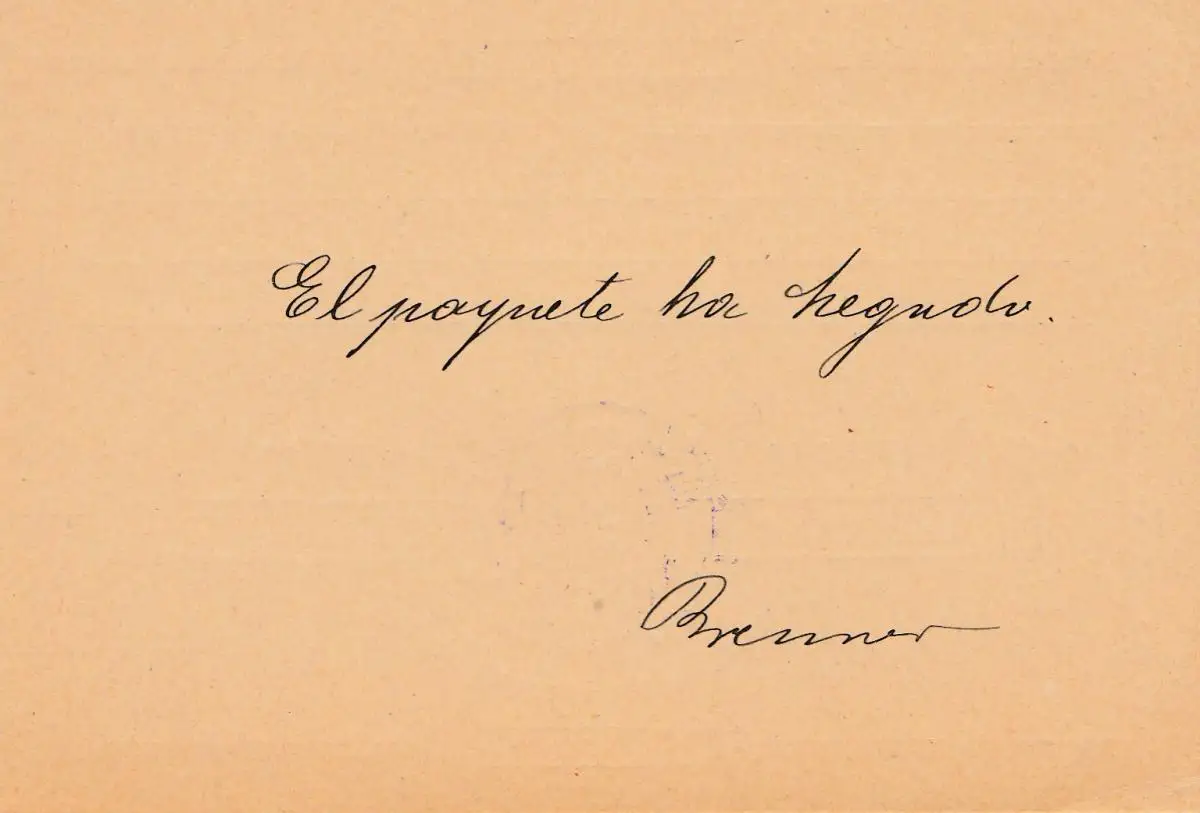 El paquete ha llegado.
Brenner